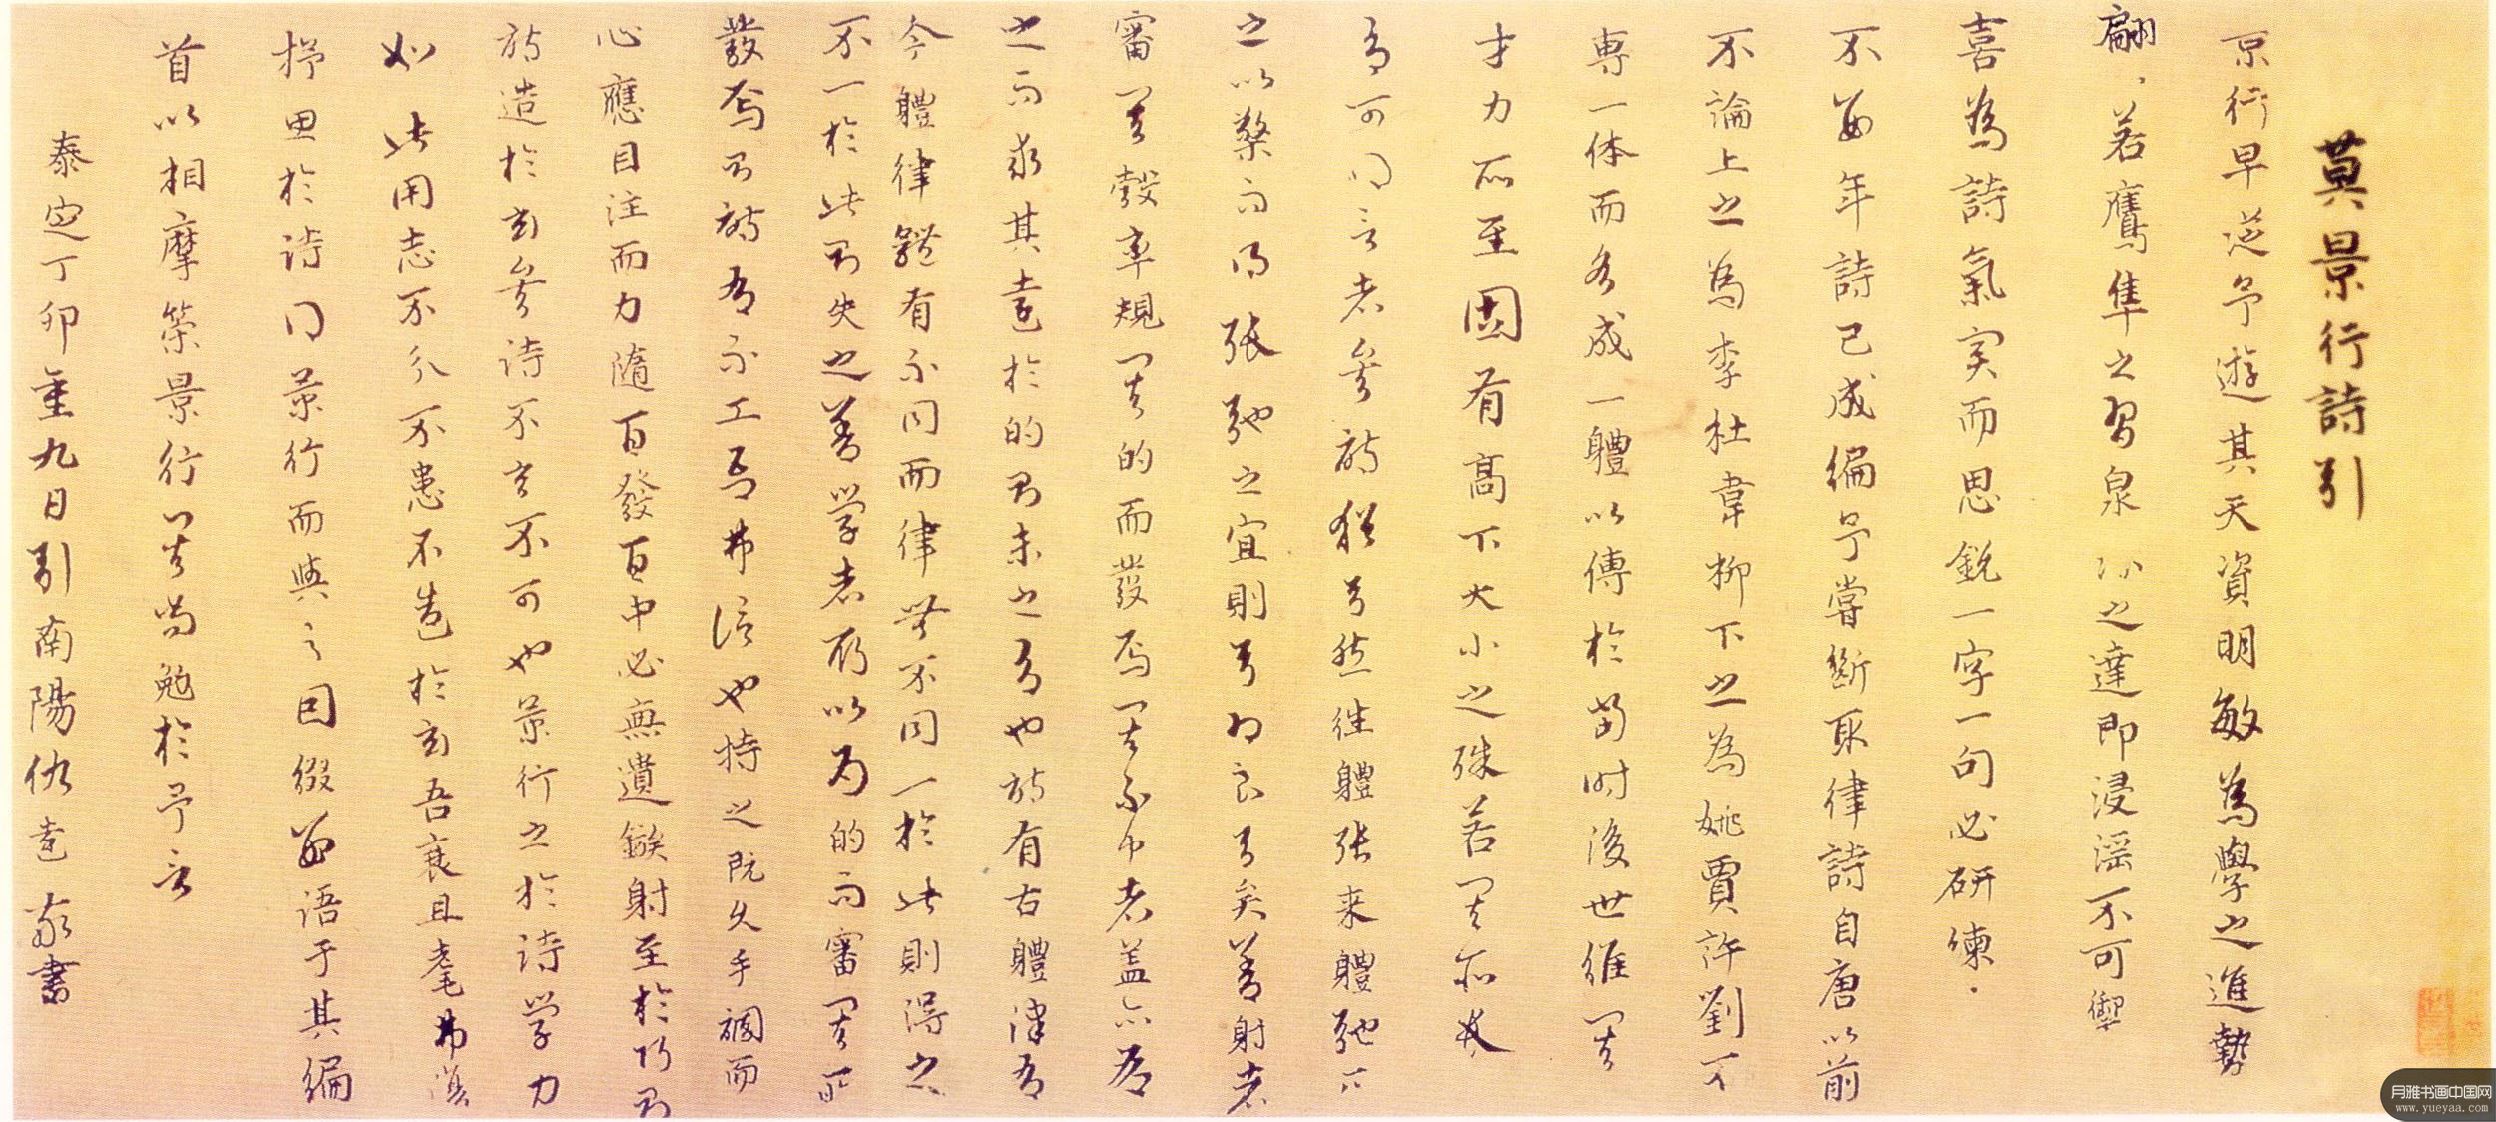 莫景行詩引
京衍早從予遊其天資明敏為學之進勢
翩、若鷹隼之習泉 之達即浸滛不可禦
喜為詩氣実而思銳一字一句必研練
不數年詩已成編予嘗斷取律詩自唐以前
不論上之為李杜韋柳下之為姚賈許劉不
専一体而各成一體以傳於當时後世雖其
才力所至固有高下大小之殊若其所長
則可得言者矣詩猶弓然往體張来體弛正
之以檠而得張弛之宜則弓乃良弓矣善射者
審其彀率規其的而發焉其不中者盖亦為
之而求其至於的則未之有也詩有古體律有
今體律體有不同而律無不同一於此則得之
不一於此則失之善学者所以为的而審其正
發焉則詩有不工吾弗信也持之既久手調而
心應目注而力隨百發百中必無遺鏃射至於巧則
詩造於玄矣詩不玄不可也景行之於詩学力
如此用志不分不患不造於玄吾衰且耄弗復
抒思於詩门景行而與之因綴數語于其編
首以相摩策景行其尚勉於予言
泰定丁卯重九日引南陽仇遠敬書
月雅书画中国网
www.yueyaa.com